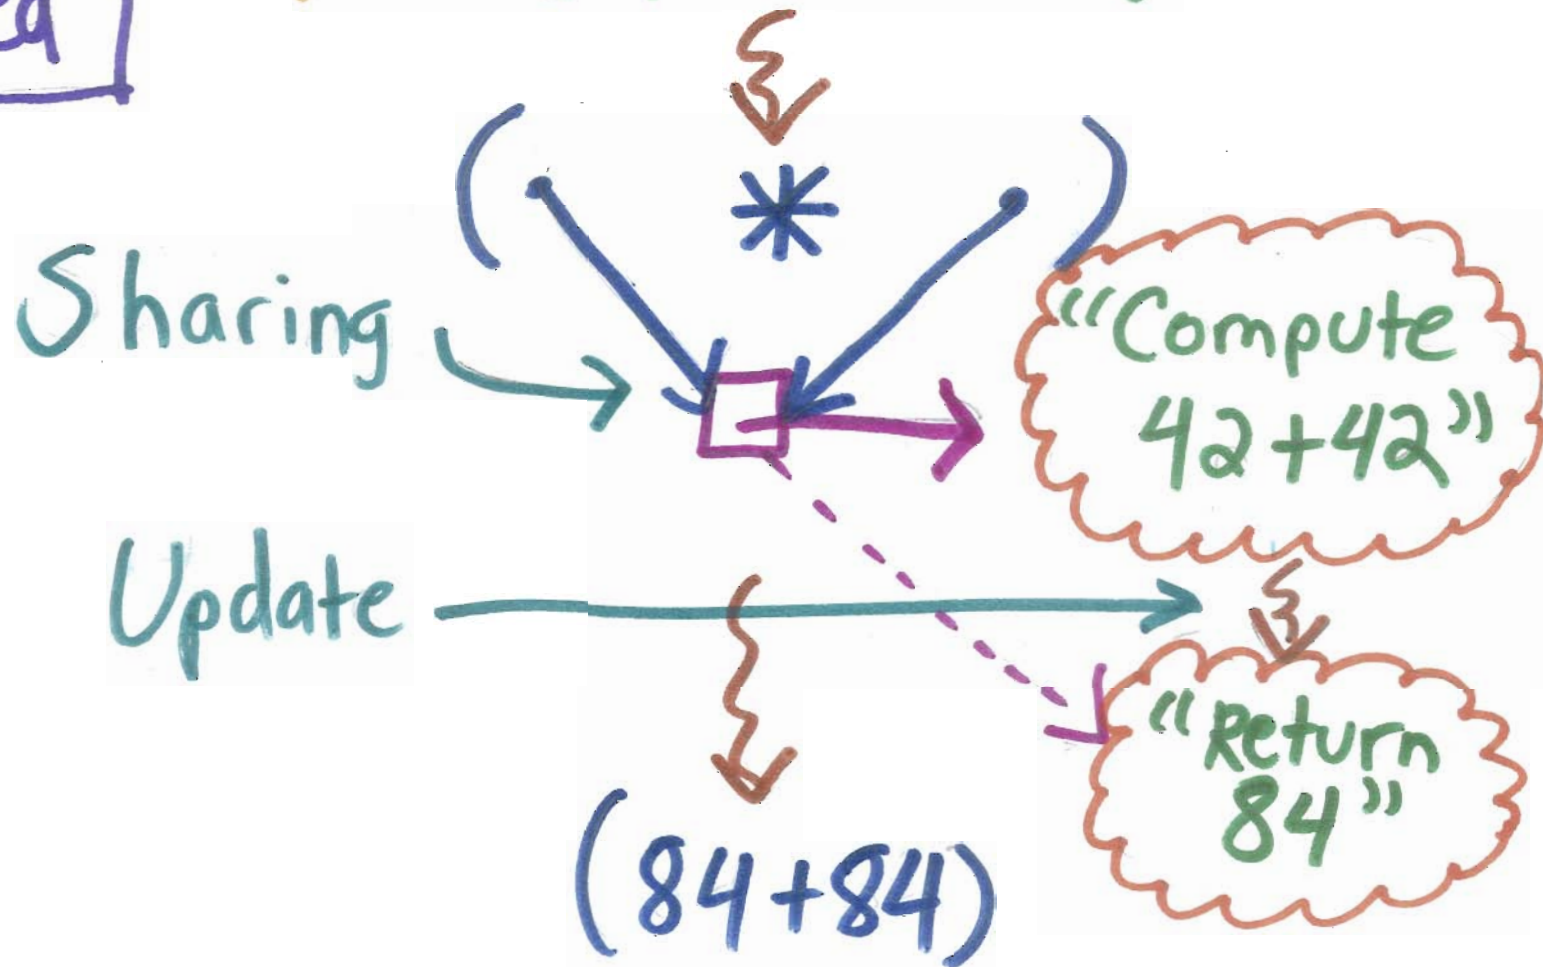 ( * )
Sharing
"Compute
42+42"
Update
"Return
84"
(84+84)